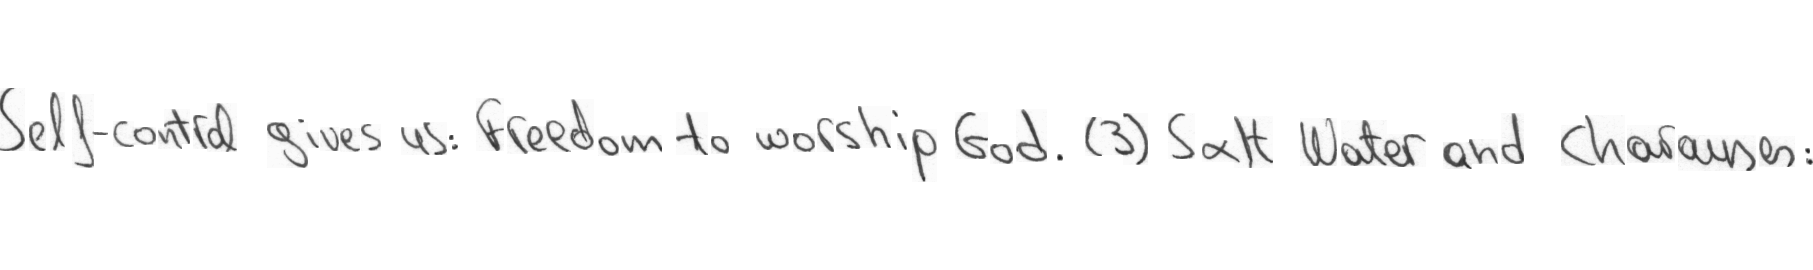 Self-control gives us: Freedom to worship God. (3) Salt Water and Charauses: